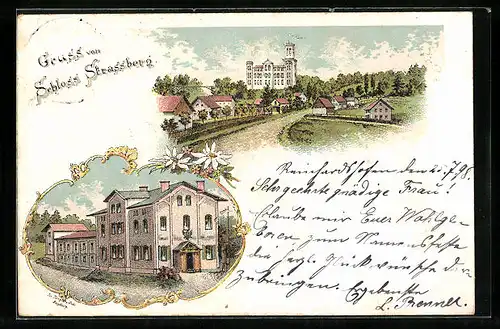 Gruss von
Schloss Strassberg.
Reinhardshofen den 25.7.98.
Sehrgeehrte gnädige Frau!
Erlaube mir Euer Wohlge-
boren zum Namensfeste
die hrzl. Glückwünsche dar-
zubringen. Ergebenste
L. Rennel